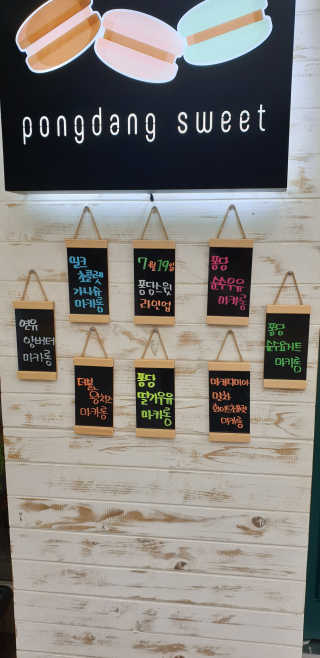 pongdang sweet
밀크
초콜렛
가나슈
마카롱
7월19일
퐁당스윗
라인업
퐁당
순수우유
마카롱
연유
앙버터
마카롱
퐁당
순수요거트
마카롱
더블
뚱치즈
마카롱
퐁당
딸기우유
마카롱
마카다미아
말차
화이트초콜렛
마카롱